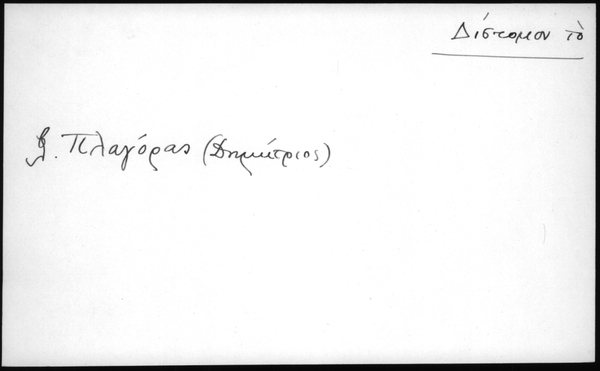 Δίστομον τὸ
βλ. Πλαγόρας (Δημήτριος)